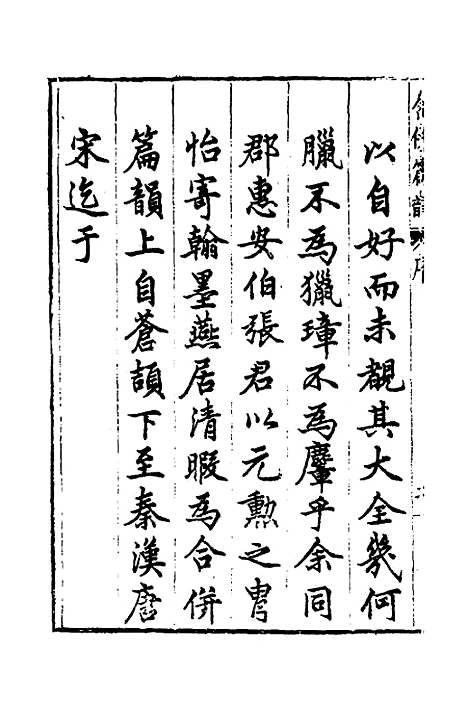 以自好而未覩其大全幾何
臘不為獵璋不為麞乎余同
郡惠安伯張君以元勳之胄
怡寄翰墨燕居清暇為合併
篇韻上自蒼頡下至秦漢唐
宋迄于